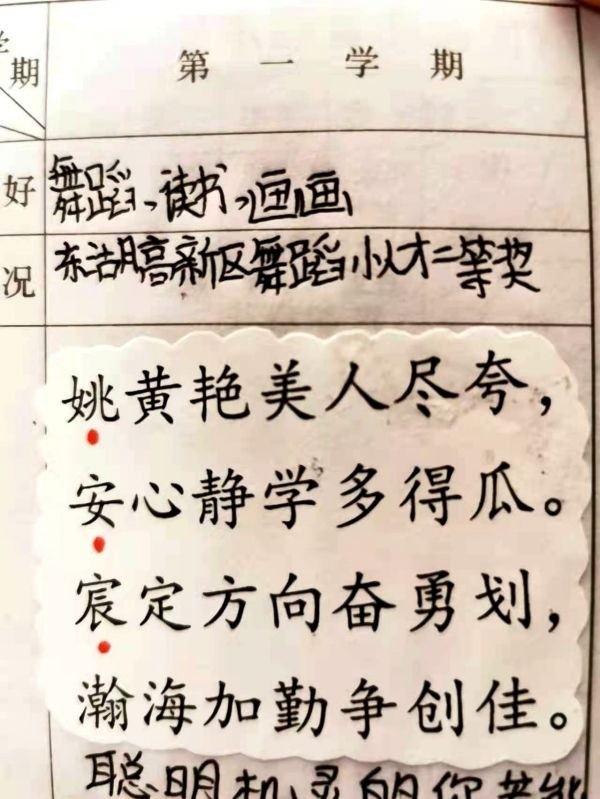 学
期
第一学期
好
舞蹈、读书、画画
况
东湖高新区舞蹈小人才二等奖
姚黄艳美人尽夸，
安心静学多得瓜。
宸定方向奋勇划，
瀚海加勤争创佳。
聪明机灵的你若能